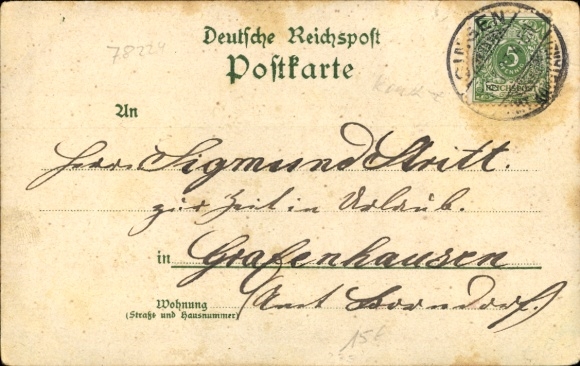 78224
Deutsche Reichspost
Postkarte
SINGEN
5
REICHSPOST
An
Herrn Sigmund Stritt.
zur Zeit in Urlaub.
in Grafenhausen
Wohnung
(Straße und Hausnummer)
(Amt Bonndorf.)
15€